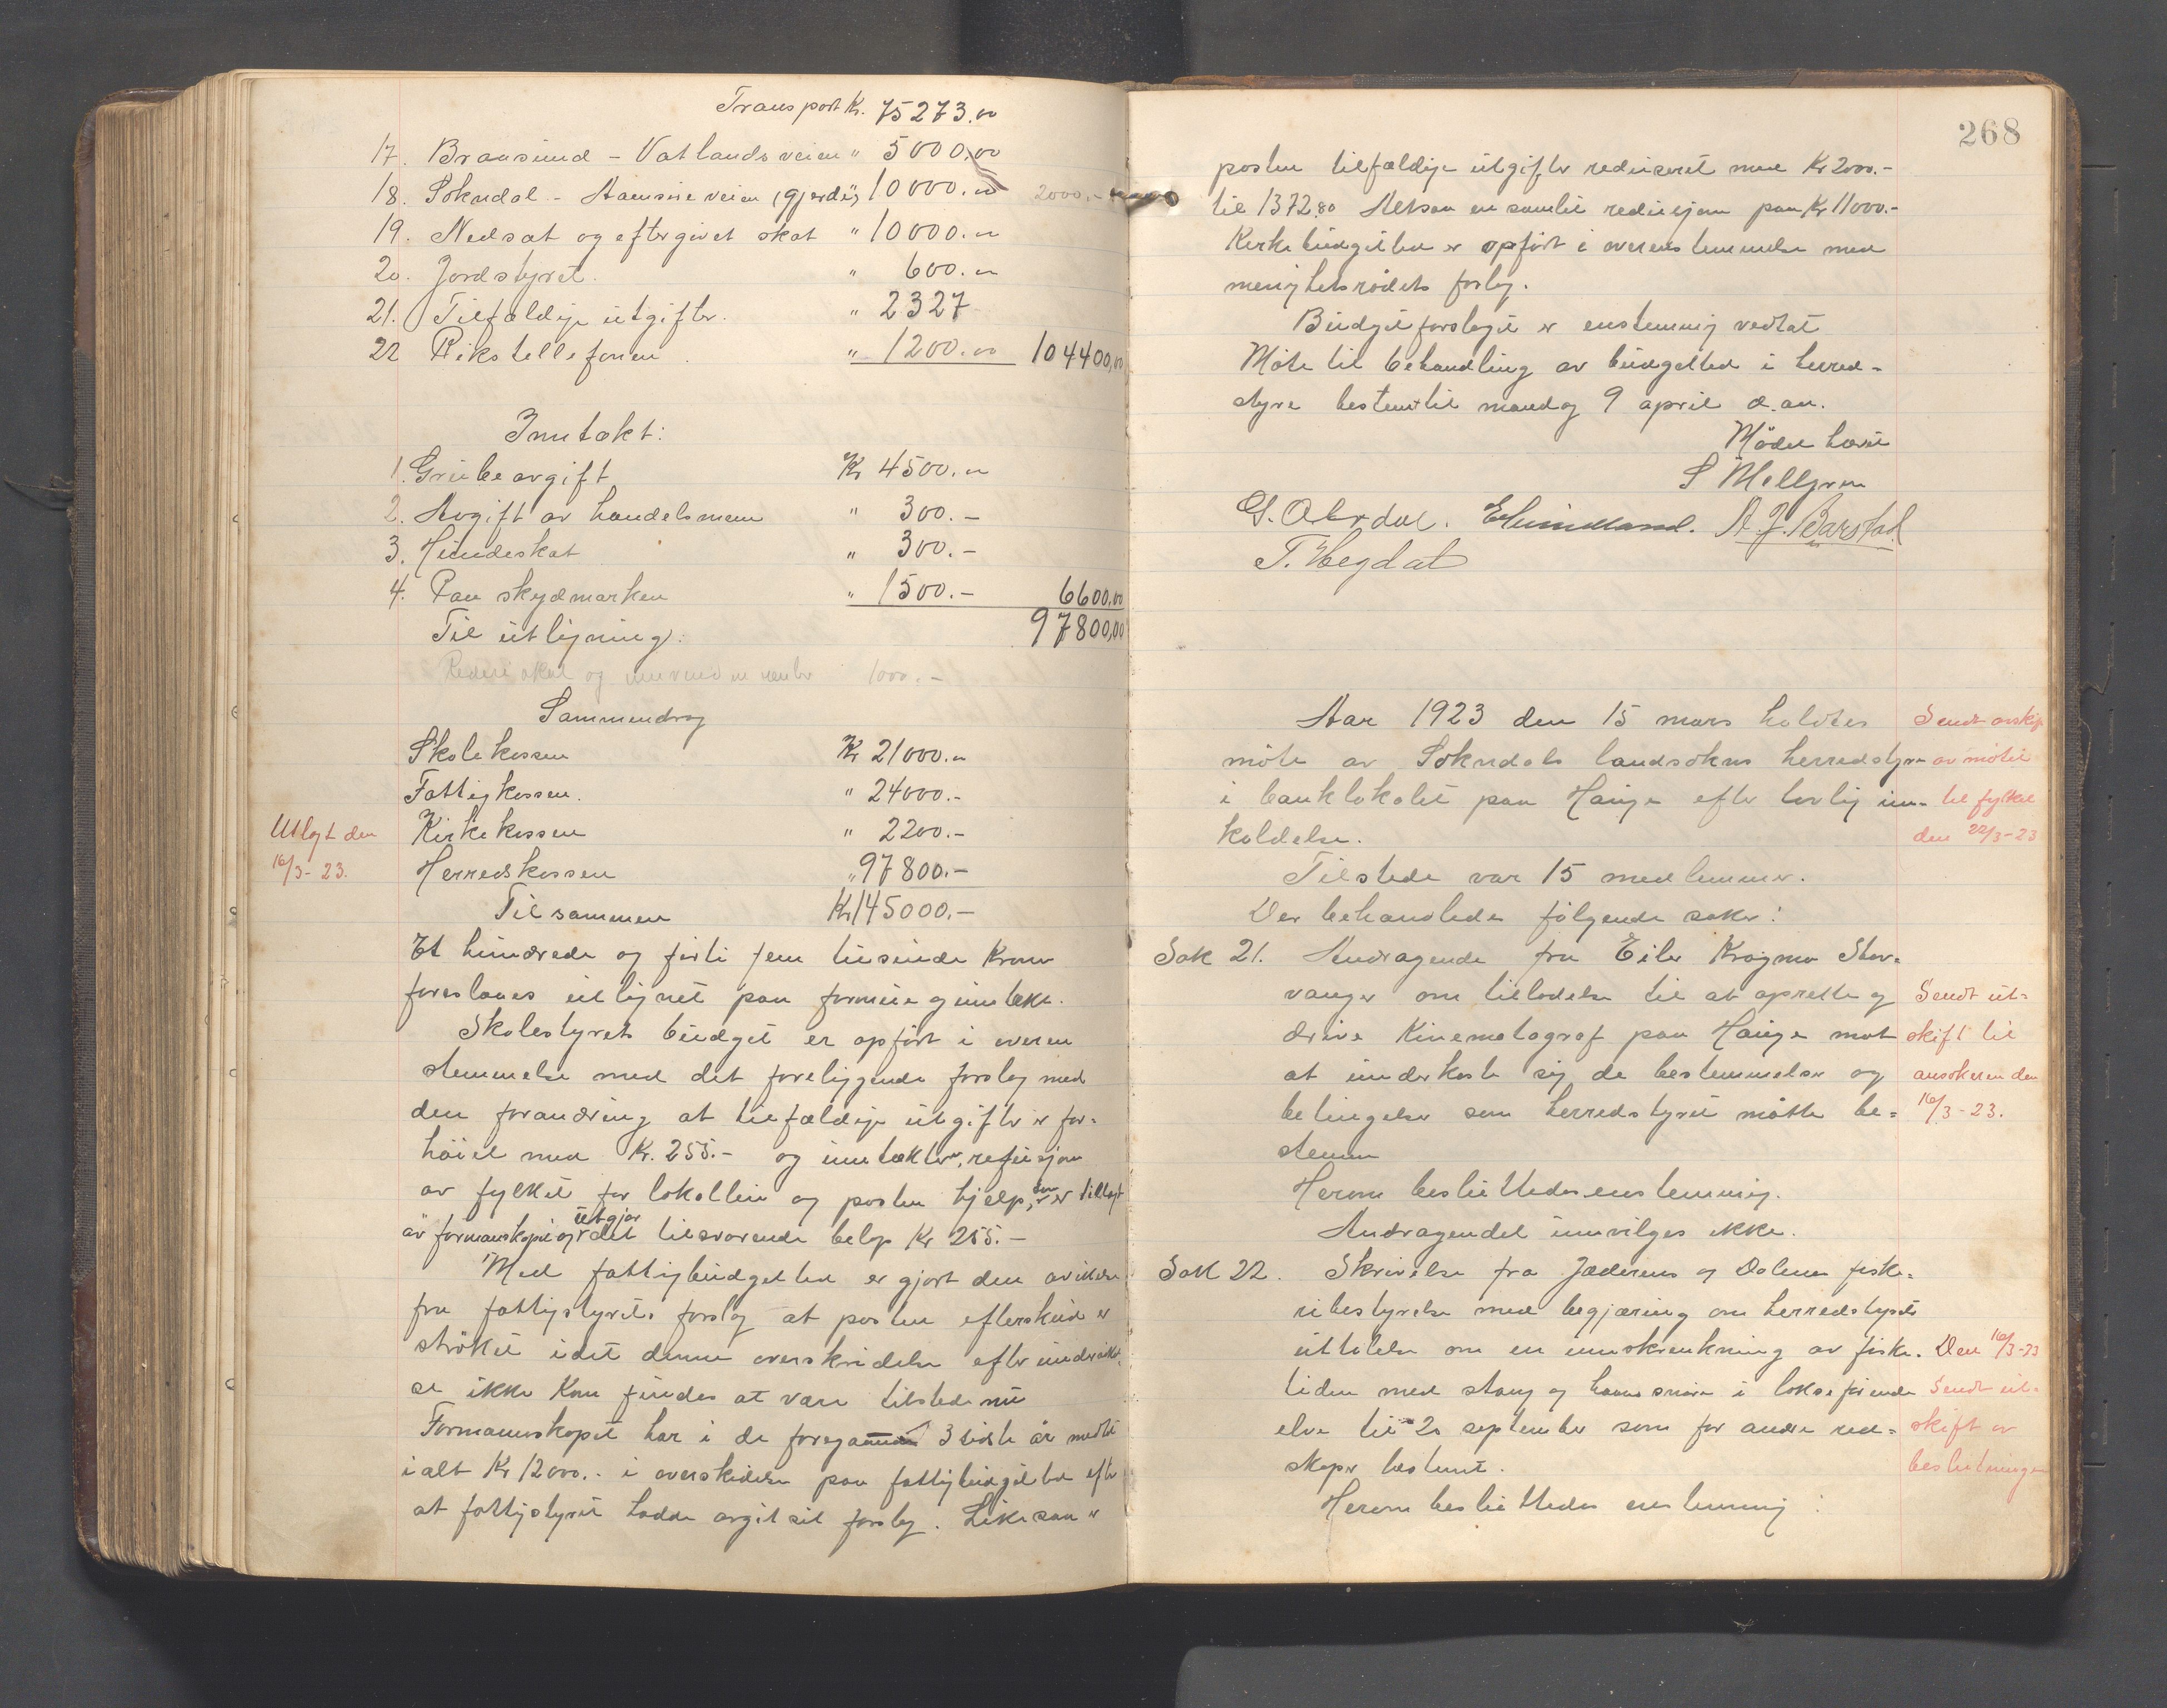 Transport Kr. 75273.00
17. Brausund - Vatlandsveien " 5000,00
18. Sokndal - Aamsieveien (gjerde) " 10000.00 2000.-
19. Nedsat og eftergivet skat " 10000.00
20. Jordstyret. " 600.00
21. Tilfældige utgifter. " 2327
22 Rikstellefonen " 1200.00 104400,00
Inntækt:
1. Grubeavgift Kr 4500.00
2. Avgift av handelsmenn " 300.-
3. Hundeskat " 300.-
4. Paa skydmarken " 1500.- 6600,00
Til utligning: 97800,00
Rederiskat og 1000.-
Sammendrag
Skolekassen Kr 21000.00
Fattigkassen. " 24000.-
Utlagt den
16/3-23.
Kirkekassen " 2200.-
Herredskassen " 97800.-
Tilsammen Kr 145000.-
Et hundrede og førti fem tusinde Kroner
foreslaaes utlignet paa formue og inntækt.
Skolestyrets budget er opført i overen
stemmelse med det foreliggende forslag med
den forandring at tilfældige utgifter er for-
høiet med Kr. 255.- og inntækter, refusjon
av fylket for lokalleie og posten hjelp, som er tillagt
av formanskapet og utgjør det tilsvarende beløp Kr 255.-
Med fattigbudgettet er gjort den avvikelse
fra fattigstyrets forslag at posten efterskud er
strøket idet denne overskridelse efter
se ikke kan findes at være tilstede nu
Formannskapet har i de foregaaende 3 sidste år medtat
i alt Kr 12000.- i overskridelse paa fattigbudgettet efter
at fattigstyret hadde avgit sit forslag. Likesaa er
268
posten tilfældige utgifter reduseret med Kr 2000.-
til 1372.80 Altsaa en samlet reduksjon paa Kr 11000.-
Kirkebudgettet er opført i overensstemmelse med
menighetsrådets forslag.
Budgetforslaget er enstemmig vedtat
Møte til behandling av budgettet i herred-
styre bestemt til mandag 9 april d.aa.
Mødet hævet
S Mellgren
G. Aardal. E Lundland. A. J. Barstad
T. Hegdal
Aar 1923 den 15 mars holdtes
møte av Sokndals landsokns herredstyre
i banklokalet paa Hauge efter lovlig inn-
kaldelse.
Sendt avskrift
av møtet
til fylket
den 22/3-23
Tilstede var 15 medlemmer.
Der behandledes følgende saker:
Sak 21. Andragende fra Eiler Krogmo Stav-
vanger om tilladelse til at oprette og
drive Kinematograf paa Hauge mot
at underkaste sig de bestemmelser og
betingelser som herredstyret måtte be-
stemm
Sendt ut-
skrift til
ansøkeren den
16/3-23.
Herom besluttedes enstemmig.
Andragendet innvilges ikke.
Sak 22. Skrivelse fra Jæderens og Dalenes fiske-
ribestyrelse med begjæring om herredstyrets
uttalelse om en innskrenkning av fiske-
tiden med stang og haandsnøre i lakseførende
elve til 20 september som for andre red-
skaper bestemt.
Den 16/3-23
Sendt ut-
skrift av
beslutningen
Herom besluttedes enstemmig: